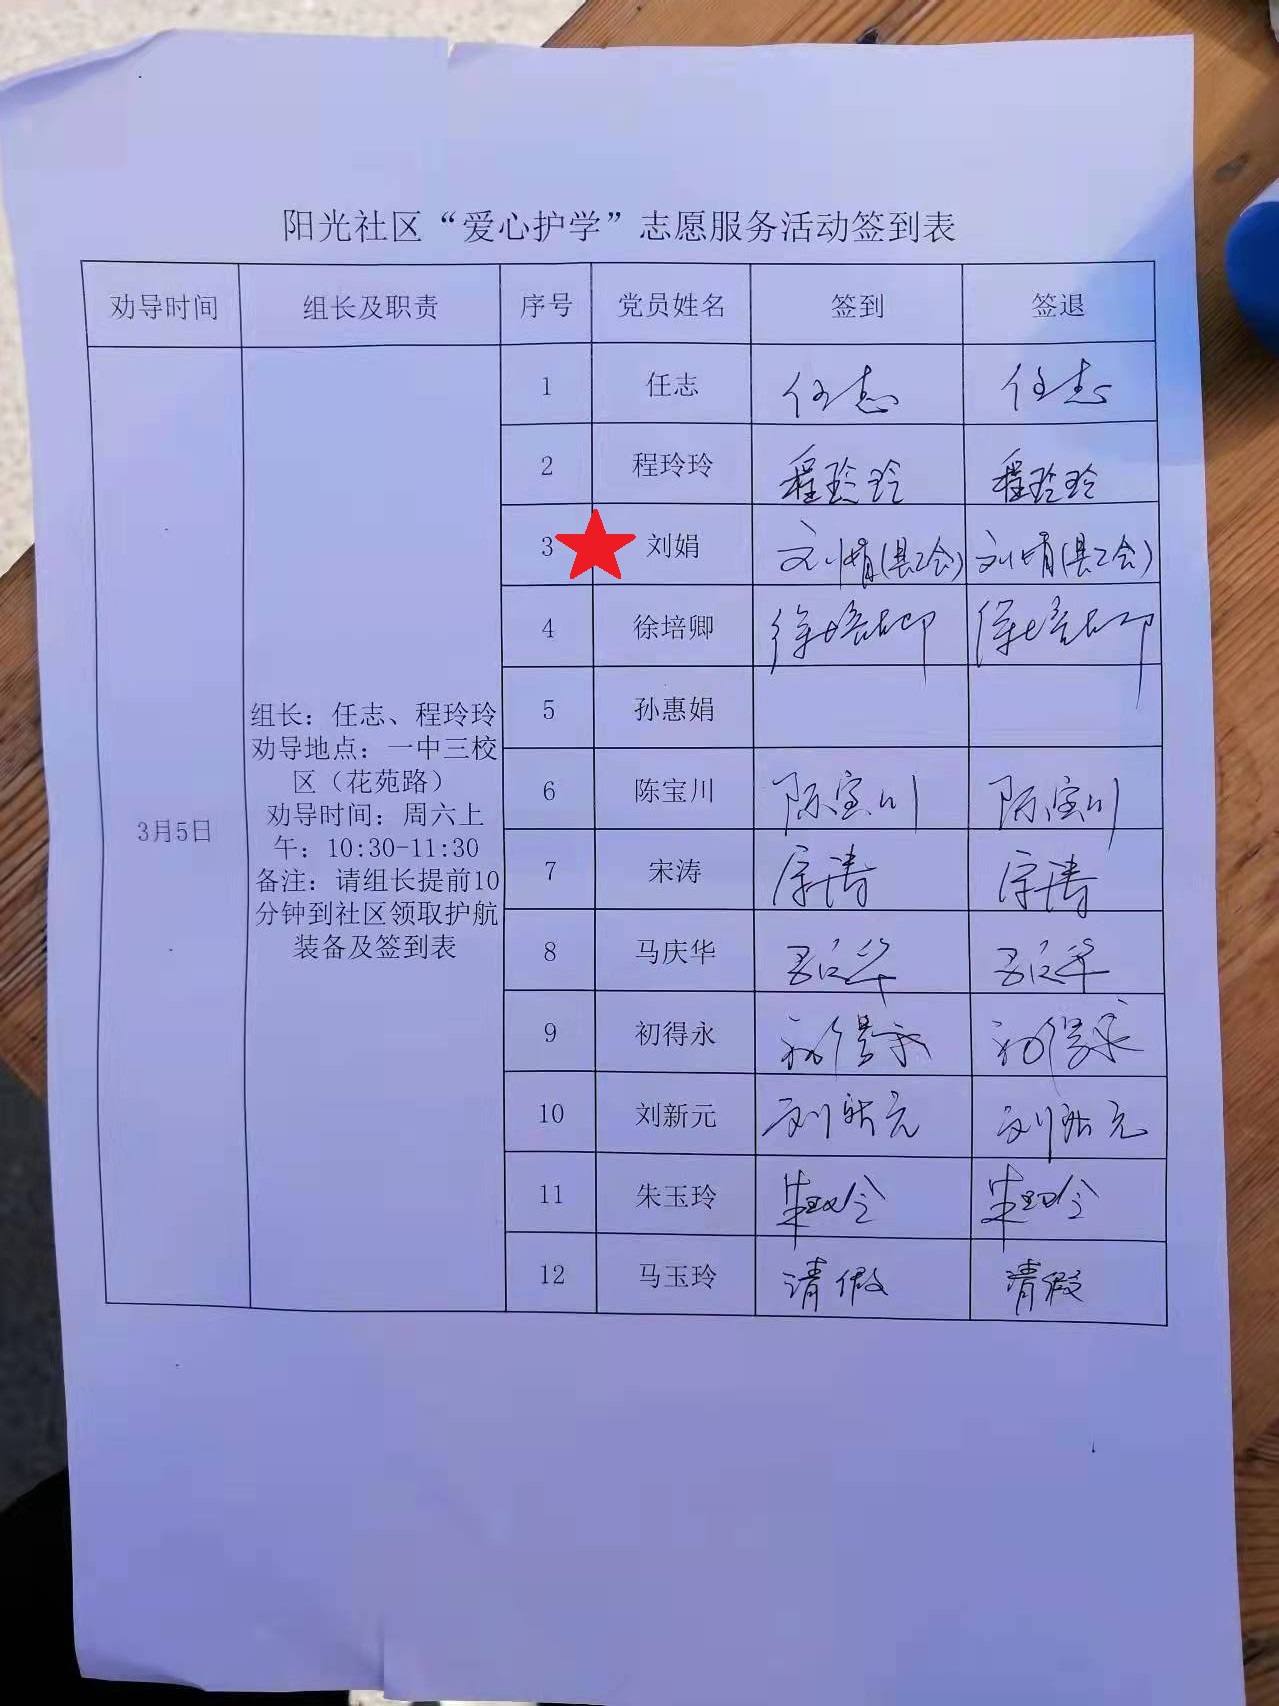 阳光社区“爱心护学”志愿服务活动签到表
劝导时间 组长及职责 序号 党员姓名 签到 签退
3月5日
组长：任志、程玲玲
劝导地点：一中三校
区（花苑路）
劝导时间：周六上
午：10:30-11:30
备注：请组长提前10
分钟到社区领取护航
装备及签到表
1 任志 任志 任志
2 程玲玲 程玲玲 程玲玲
3 刘娟 刘婧(县工会) 刘婧(县工会)
4 徐培卿 徐培卿 徐培卿
5 孙惠娟
6 陈宝川 陈宝川 陈宝川
7 宋涛 宋涛 宋涛
8 马庆华 马庆华 马庆华
9 初得永 初得永 初得永
10 刘新元 刘新元 刘新元
11 朱玉玲 朱玉玲 朱玉玲
12 马玉玲 请假 请假